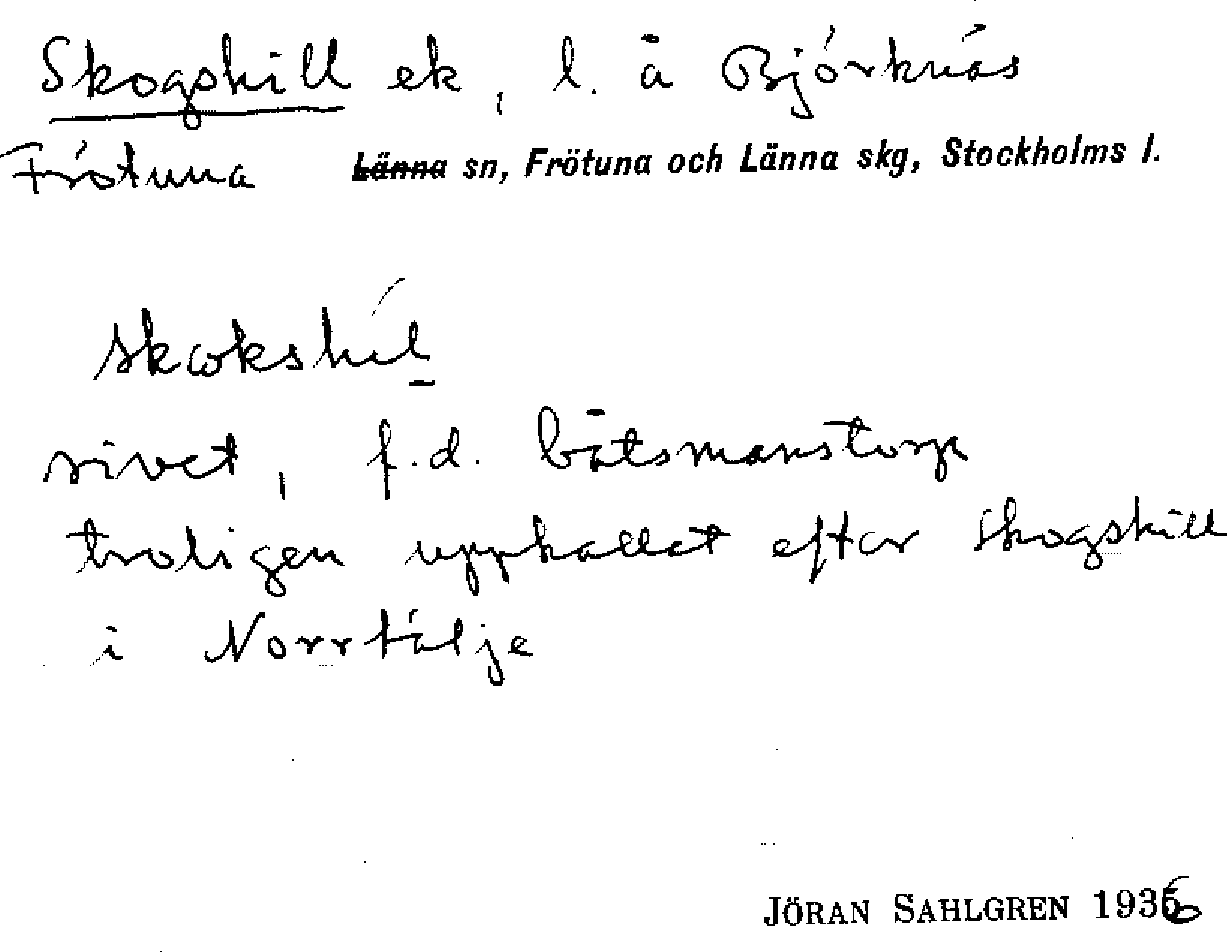 Skogshill ek, l. å Björknäs
Frötuna Länna sn, Frötuna och Länna skg, Stockholms l.
rivet, f.d. båtsmanstorp
troligen uppkallat efter Skogshill
i Norrtälje
JÖRAN SAHLGREN 1936